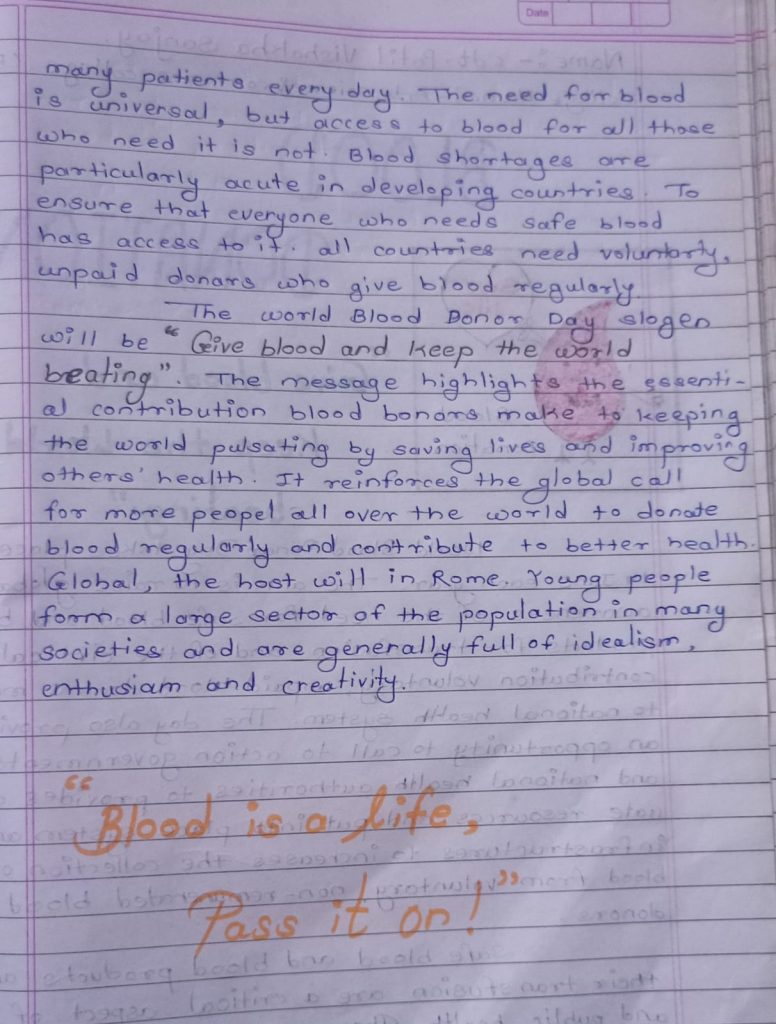 Date
many patients every day. The need for blood
is universal, but access to blood for all those
who need it is not. Blood shortages are
particularly acute in developing countries. To
ensure that everyone who needs safe blood
has access to it. all countries need voluntarty,
unpaid donars who give blood regularly.
The world Blood Donor Day slogen
will be “ Give blood and keep the world
beating”. The message highlights the essenti-
al contribution blood bonars make to keeping
the world pulsating by saving lives and improving
others' health. It reinforces the global call
for more peopel all over the world to donate
blood regularly and contribute to better health.
Global, the host will in Rome. Young people
form a large sector of the population in many
societies and are generally full of idealism,
enthusiam and creativity.
“Blood is a life,
Pass it on!”